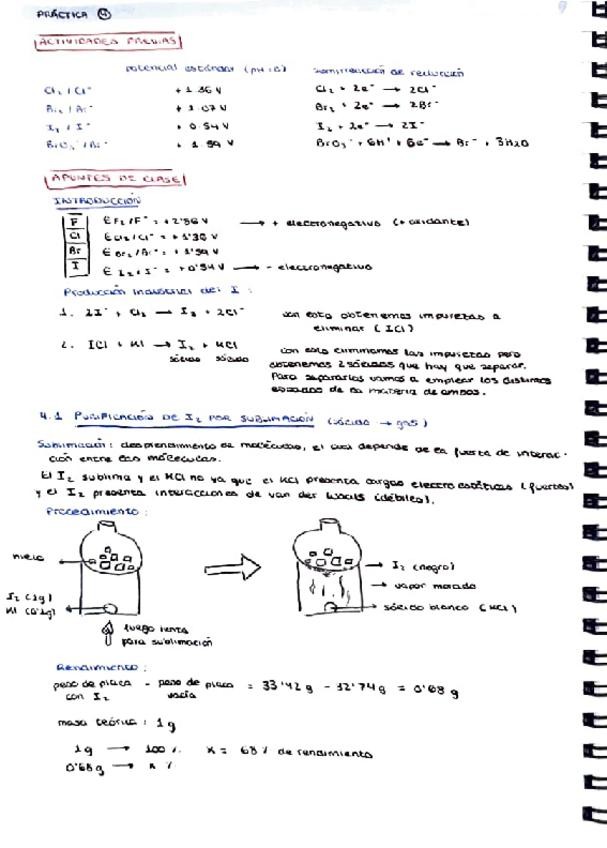 PRÁCTICA 4
ACTIVIDADES PREVIAS
potencial estándar (pH=0) semirreacción de reducción
Cl₂ / Cl⁻ + 1.36 V Cl₂ + 2e⁻ → 2Cl⁻
Br₂ / Br⁻ + 1.07 V Br₂ + 2e⁻ → 2Br⁻
I₂ / I⁻ + 0.54 V I₂ + 2e⁻ → 2I⁻
BrO₃⁻ / Br⁻ + 1.59 V BrO₃⁻ + 6H⁺ + 6e⁻ → Br⁻ + 3H₂O
APUNTES DE CLASE
INTRODUCCIÓN
F E F₂/F⁻ = +2'86 V → + electronegativo (+ oxidante)
Cl E Cl₂/Cl⁻ = +1'36 V
Br E Br₂/Br⁻ = +1'59 V
I E I₂/I⁻ = +0'54 V → - electronegativo
Producción industrial del I :
1. 2I⁻ + Cl₂ → I₂ + 2Cl⁻ con esto obtenemos impurezas a
eliminar (ICl)
2. ICl + KI → I₂ + KCl con esto eliminamos las impurezas pero
sólido sólido obtenemos 2 sólidos que hay que separar.
Para separarlos vamos a emplear los distintos
estados de la materia de ambos.
4.1 PURIFICACIÓN DE I₂ POR SUBLIMACIÓN (sólido → gas)
Sublimación : desprendimiento de moléculas, el cual depende de la fuerza de interac-
ción entre las moléculas.
El I₂ sublima y el KCl no ya que el KCl presenta cargas electrostáticas (fuertes)
y el I₂ presenta interacciones de van der Waals (débiles).
Procedimiento :
hielo
I₂ (1g)
KI (0'1g)
fuego lento
para sublimación
I₂ (negro)
vapor morado
sólido blanco (KCl)
Rendimiento :
peso de placa - peso de placa = 33'42 g - 32'74 g = 0'68 g
con I₂ vacía
masa teórica : 1 g
1 g → 100 % x = 68 % de rendimiento
0'68 g → x %